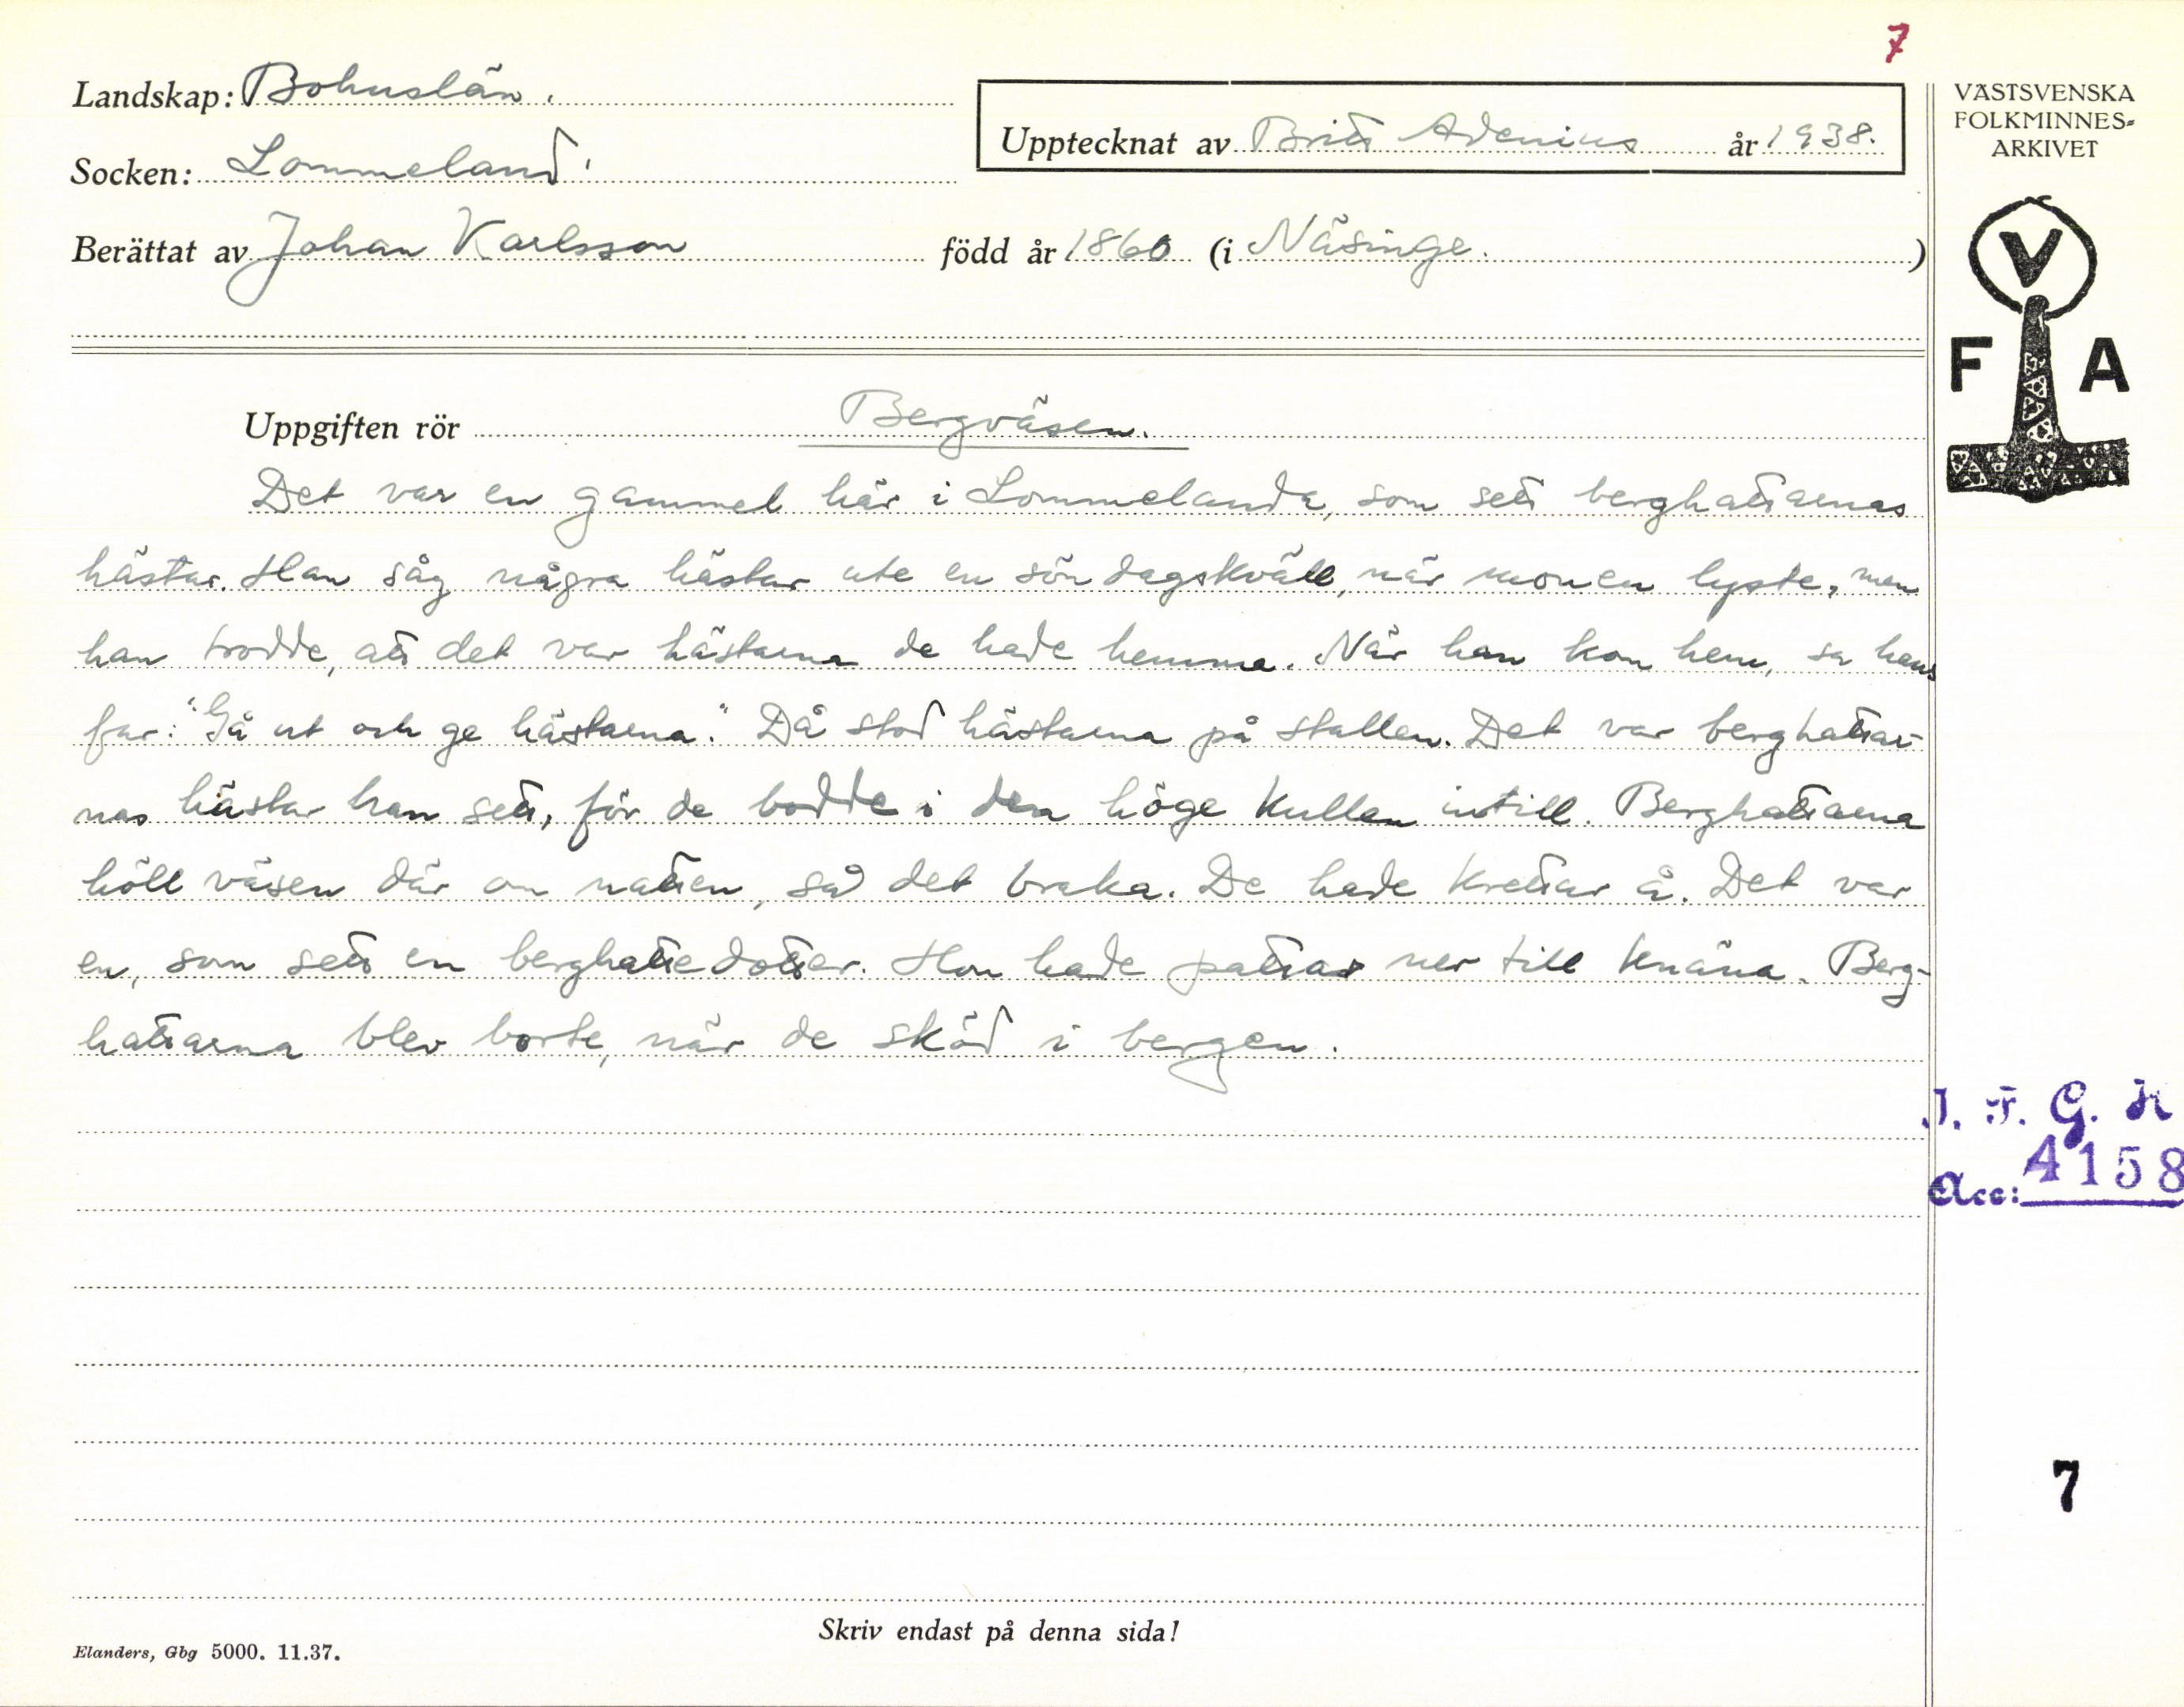 7
Landskap: Bohuslän.
Upptecknat av Britt Adenius år 1938.
Socken: Lommeland.
Berättat av Johan Karlsson född år 1860 (i Näsinge.)
VÄSTSVENSKA
FOLKMINNES=
ARKIVET
V
F A
Uppgiften rör Bergväsen.
Det var en gammel här i Lommelanda, som sett berghattarnas
hästar. Han såg några hästar ute en söndagskväll, när monen lyste, men
han trodde, att det var hästarna de hade hemma. När han kom hem, sa hans
far: "Gå ut och ge hästarna." Då stod hästarna på stallen. Det var berghattar-
nas hästar han sett, för de bodde i den höge kullen intill. Berghattarna
höll väsen där om natten, så det braka. De hade krettar å. Det var
en, som sett en berghattedotter. Hon hade pattar ner till knäna. Berg-
hattarna blev borte, när de sköd i bergen.
I. F. G. H
Acc: 4158
7
Skriv endast på denna sida!
Elanders, Gbg 5000. 11.37.